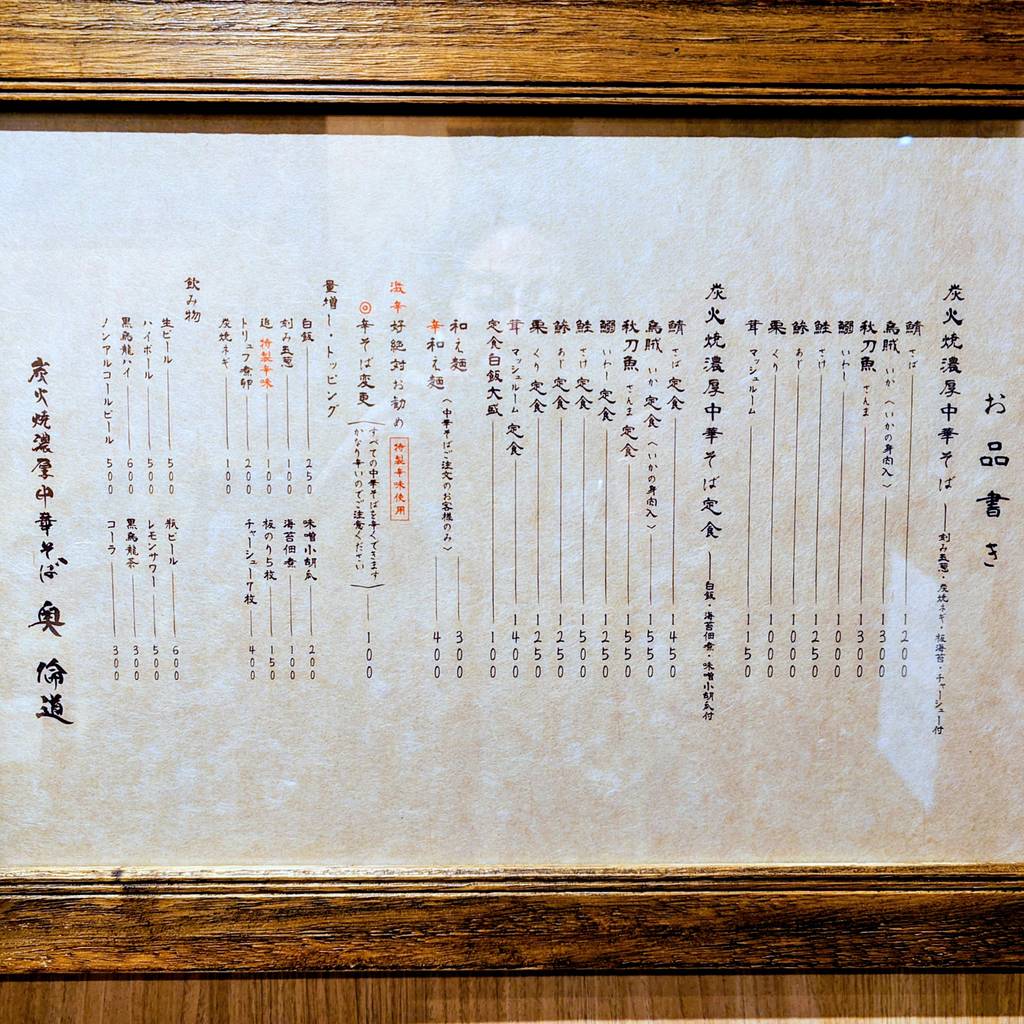 お品書き
炭火焼濃厚中華そば ― 刻み玉葱・炭焼ネギ・板海苔・チャーシュー付
鯖 さば 1200
烏賊 いか（いかの身肉入） 1300
秋刀魚 さんま 1300
鰯 いわし 1000
鮭 さけ 1250
鯵 あじ 1000
栗 くり 1000
茸 マッシュルーム 1150
炭火焼濃厚中華そば定食 ― 白飯・海苔佃煮・味噌小胡瓜付
鯖 さば 定食 1450
烏賊 いか 定食（いかの身肉入） 1550
秋刀魚 さんま 定食 1550
鰯 いわし 定食 1250
鮭 さけ 定食 1500
鯵 あじ 定食 1250
栗 くり 定食 1250
茸 マッシュルーム 定食 1400
定食白飯大盛 100
和え麺（中華そばご注文のお客様のみ） 300
辛和え麺 400
激辛好絶対お勧め 特製辛味使用
◎辛そば変更（すべての中華そばを辛くできます かなり辛いのでご注意ください） 100
量増し・トッピング
白飯 250 味噌小胡瓜 200
刻み玉葱 100 海苔佃煮 100
追 特製辛味 100 板のり5枚 150
トリュフ煮卵 200 チャーシュー7枚 400
炭焼ネギ 100
飲み物
生ビール 500 瓶ビール 600
ハイボール 500 レモンサワー 500
黒烏龍ハイ 600 黒烏龍茶 300
ノンアルコールビール 500 コーラ 300
炭火焼濃厚中華そば 奥 倫道